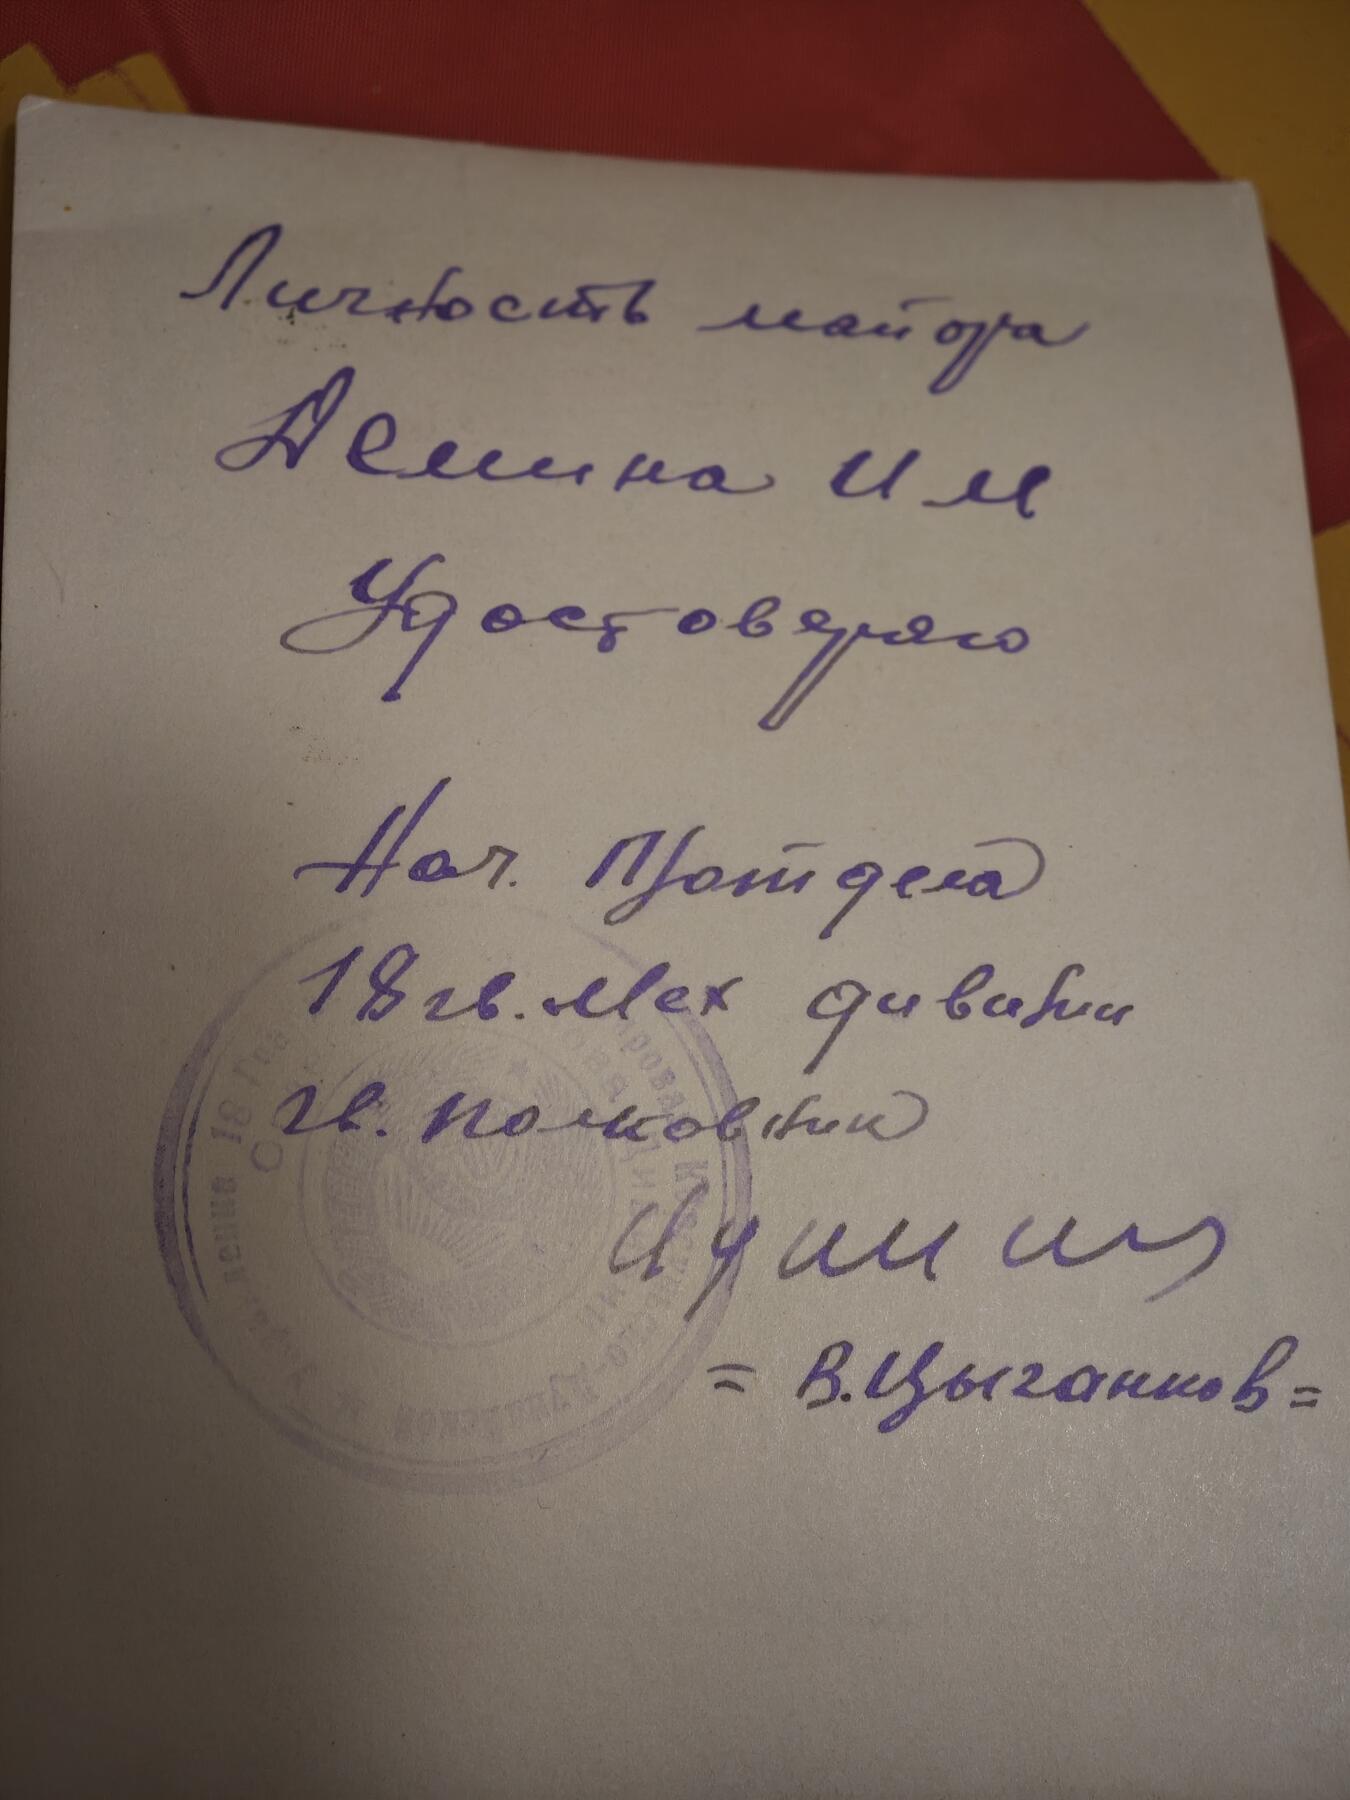 Личность майора
Демина И М
Удостоверяю
Нач. Полотдела
18 гв. Мех дивизии
гв. полковник
= В. Цыганков =